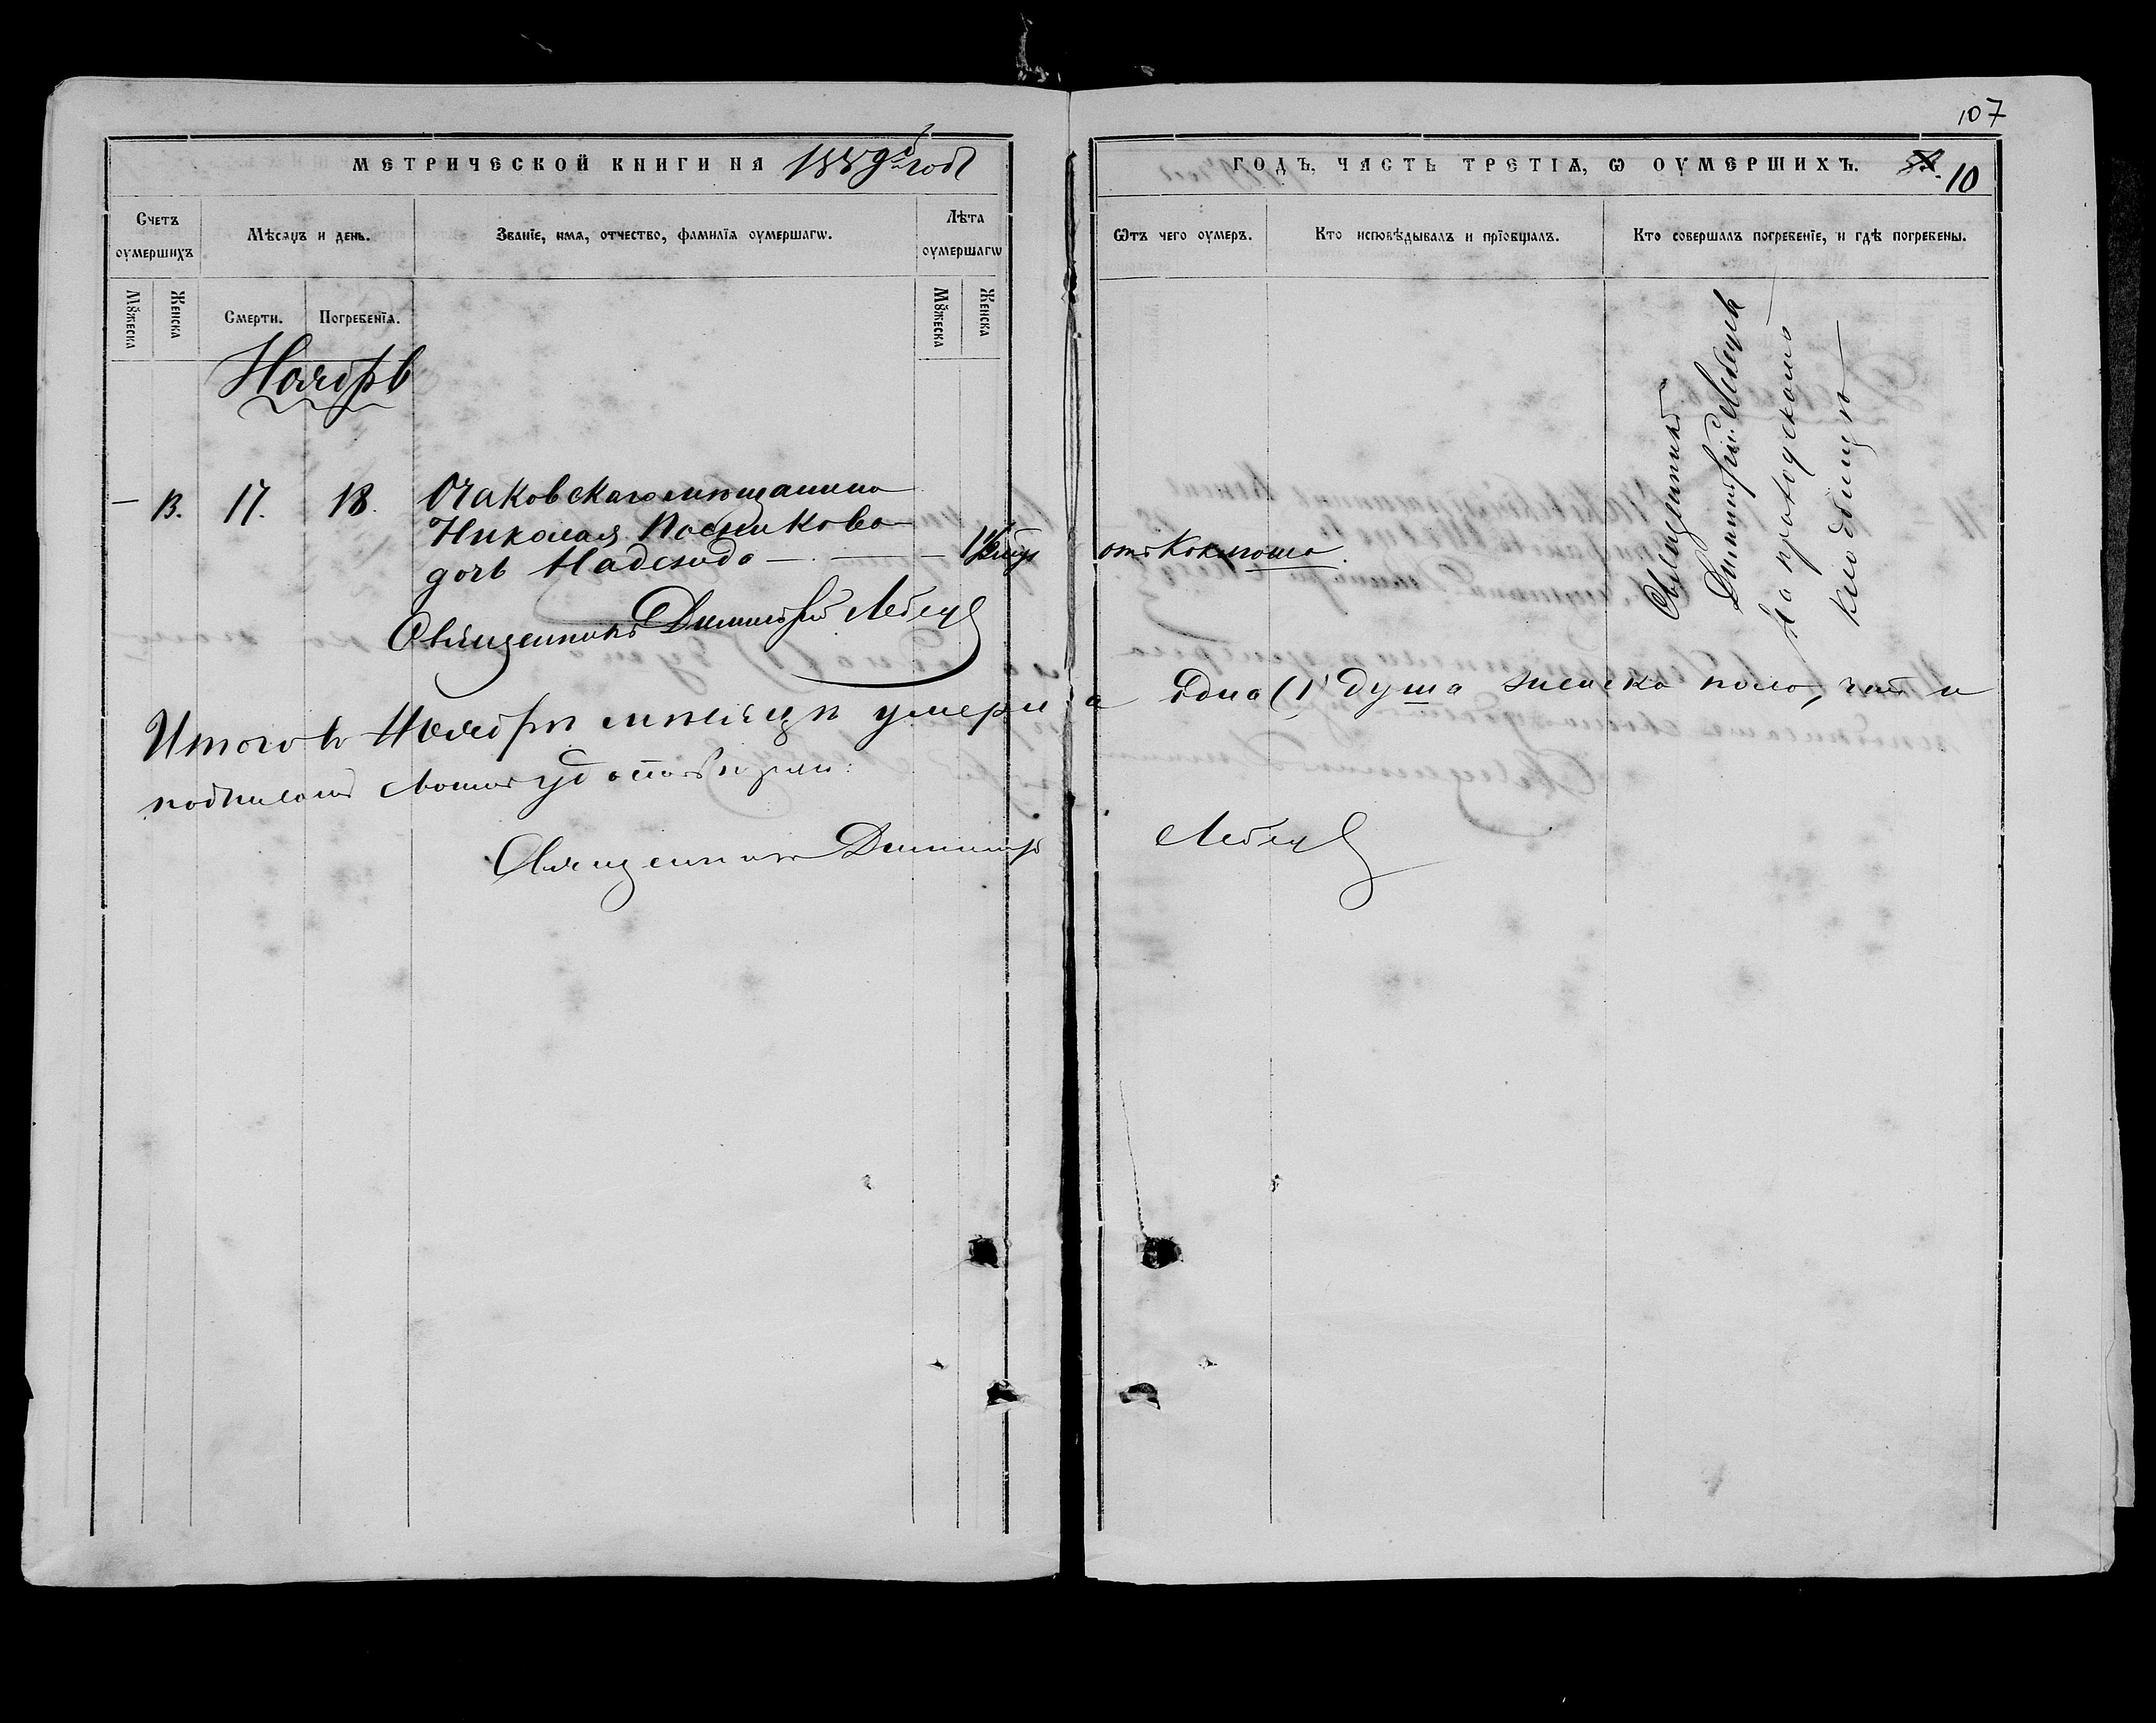 107
МЕТРИЧЕСКОЙ КНИГИ НА 1889й годъ
ГОДЪ, ЧАСТЬ ТРЕТІѦ, Ѡ ОУМЕРШИХЪ.
10
Счетъ оумершихъ
Мѣсяцъ и день.
Званїе, имя, отчество, фамилїя оумершагѡ.
Лѣта оумершагѡ
Ѿтъ чего оумеръ.
Кто исповѣдывалъ и прїобщалъ.
Кто совершалъ погребенїе, и гдѣ погребены.
Мꙋжеска
Женска
Смерти.
Погребенїѧ.
Мꙋжеска
Женска
Ноябрь
— 13. 17. 18. Очаковскаго мѣщанина
Николая Постикова
дочь Надежда —
отъ Коклюша.
Священникъ
Димитрій Лебедев
На приходскомъ
кладбищѣ
Священникъ Димитрій Лебедев
Итого въ Ноябрѣ мѣсяцѣ умерла одна (1) душа женска пола, чѣмъ и
подписомъ своимъ удостовѣряемъ:
Священникъ Димитрій Лебедев